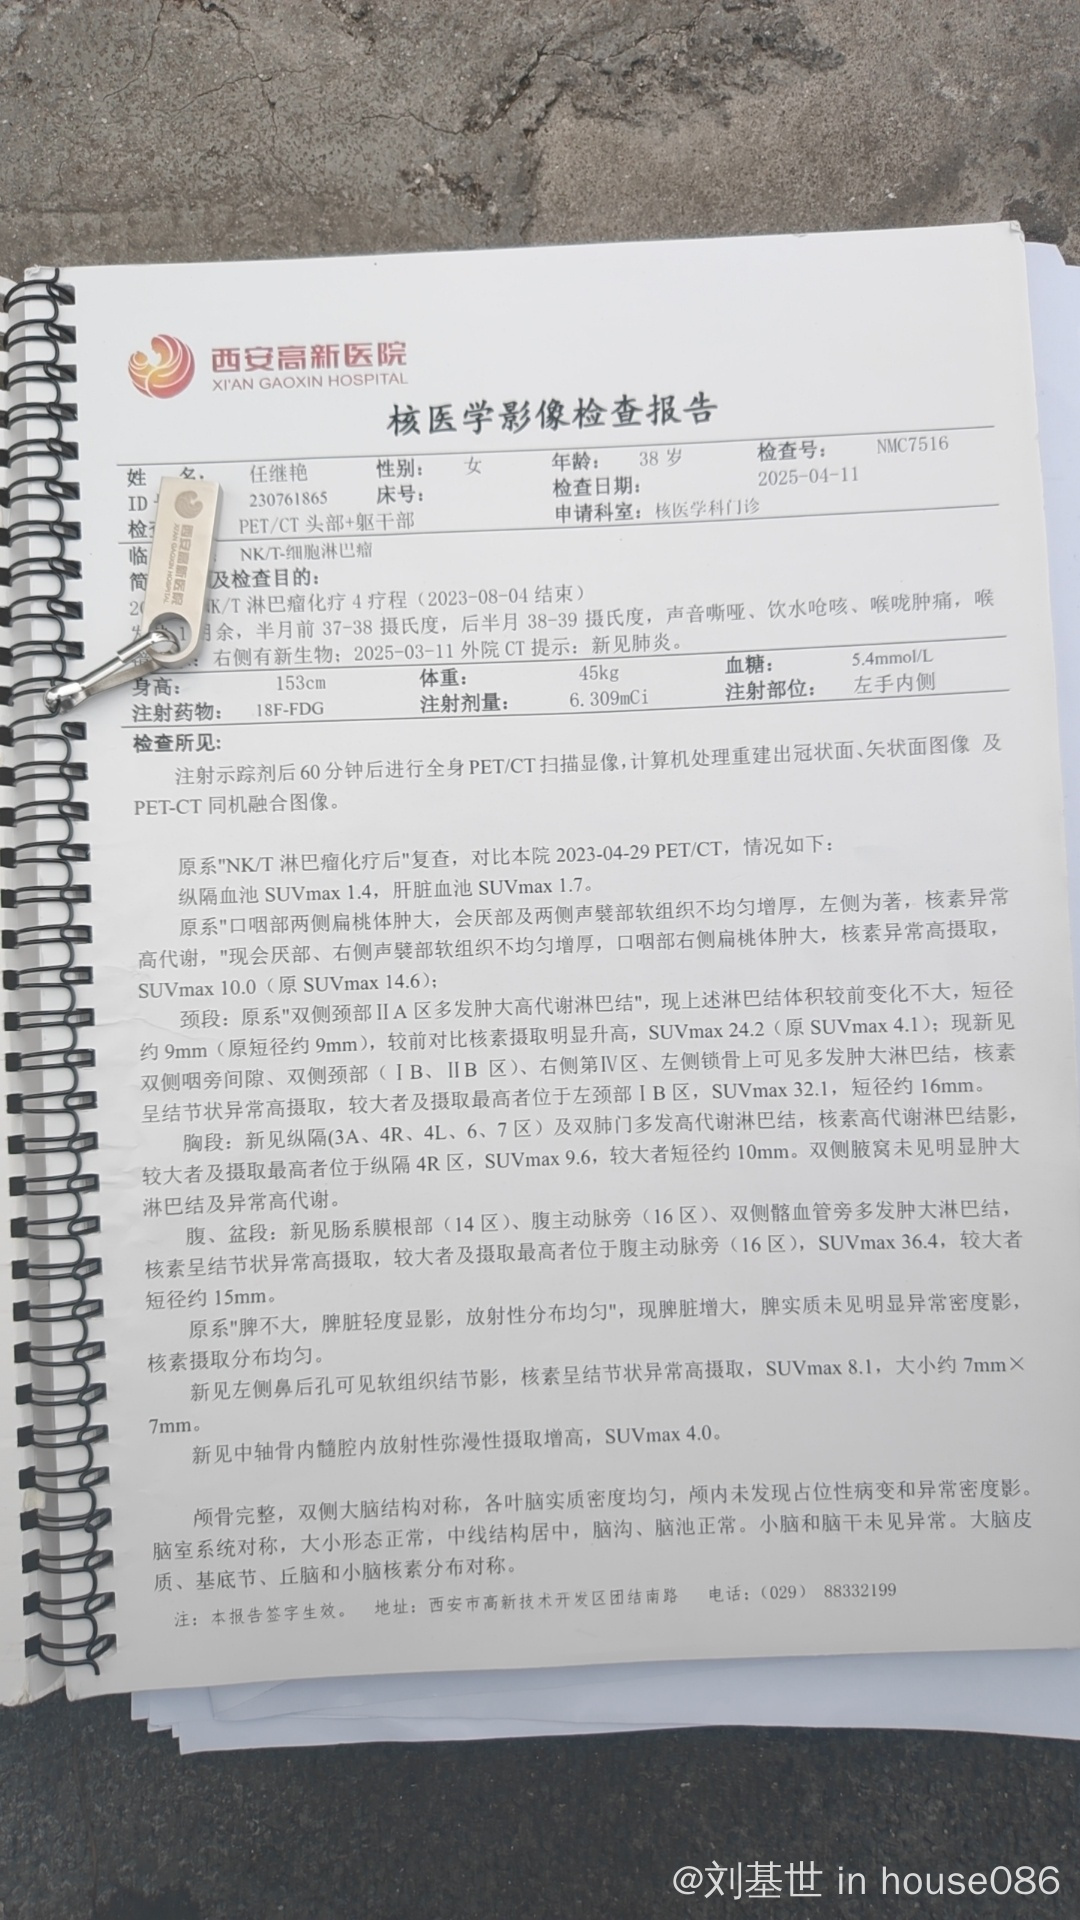 西安高新医院
XI'AN GAOXIN HOSPITAL
核医学影像检查报告
姓 名: 任继艳 性别: 女 年龄: 38 岁 检查号: NMC7516
ID 230761865 床号: 检查日期: 2025-04-11
检 PET/CT 头部+躯干部 申请科室: 核医学科门诊
临 : NK/T-细胞淋巴瘤
简 及检查目的:
20 NK/T 淋巴瘤化疗 4 疗程（2023-08-04 结束）
1 月余，半月前 37-38 摄氏度，后半月 38-39 摄氏度，声音嘶哑、饮水呛咳、喉咙肿痛，喉
: 右侧有新生物; 2025-03-11 外院 CT 提示: 新见肺炎。
身高: 153cm 体重: 45kg 血糖: 5.4mmol/L
注射药物: 18F-FDG 注射剂量: 6.309mCi 注射部位: 左手内侧
检查所见:
注射示踪剂后 60 分钟后进行全身 PET/CT 扫描显像,计算机处理重建出冠状面、矢状面图像 及
PET-CT 同机融合图像。
原系"NK/T 淋巴瘤化疗后"复查，对比本院 2023-04-29 PET/CT，情况如下:
纵隔血池 SUVmax 1.4，肝脏血池 SUVmax 1.7。
原系"口咽部两侧扁桃体肿大，会厌部及两侧声襞部软组织不均匀增厚，左侧为著，核素异常
高代谢，"现会厌部、右侧声襞部软组织不均匀增厚，口咽部右侧扁桃体肿大，核素异常高摄取，
SUVmax 10.0（原 SUVmax 14.6）;
颈段: 原系"双侧颈部ⅡA 区多发肿大高代谢淋巴结"，现上述淋巴结体积较前变化不大，短径
约 9mm（原短径约 9mm），较前对比核素摄取明显升高，SUVmax 24.2（原 SUVmax 4.1）; 现新见
双侧咽旁间隙、双侧颈部（ⅠB、ⅡB 区）、右侧第Ⅳ区、左侧锁骨上可见多发肿大淋巴结，核素
呈结节状异常高摄取，较大者及摄取最高者位于左颈部ⅠB 区，SUVmax 32.1，短径约 16mm。
胸段: 新见纵隔(3A、4R、4L、6、7 区）及双肺门多发高代谢淋巴结，核素高代谢淋巴结影，
较大者及摄取最高者位于纵隔 4R 区，SUVmax 9.6，较大者短径约 10mm。双侧腋窝未见明显肿大
淋巴结及异常高代谢。
腹、盆段: 新见肠系膜根部（14 区）、腹主动脉旁（16 区）、双侧髂血管旁多发肿大淋巴结，
核素呈结节状异常高摄取，较大者及摄取最高者位于腹主动脉旁（16 区），SUVmax 36.4，较大者
短径约 15mm。
原系"脾不大，脾脏轻度显影，放射性分布均匀"，现脾脏增大，脾实质未见明显异常密度影，
核素摄取分布均匀。
新见左侧鼻后孔可见软组织结节影，核素呈结节状异常高摄取，SUVmax 8.1，大小约 7mm×
7mm。
新见中轴骨内髓腔内放射性弥漫性摄取增高，SUVmax 4.0。
颅骨完整，双侧大脑结构对称，各叶脑实质密度均匀，颅内未发现占位性病变和异常密度影。
脑室系统对称，大小形态正常，中线结构居中，脑沟、脑池正常。小脑和脑干未见异常。大脑皮
质、基底节、丘脑和小脑核素分布对称。
注: 本报告签字生效。 地址: 西安市高新技术开发区团结南路 电话:（029） 88332199
西安高新医院
XI'AN GAOXIN HOSPITAL
@刘基世 in house086